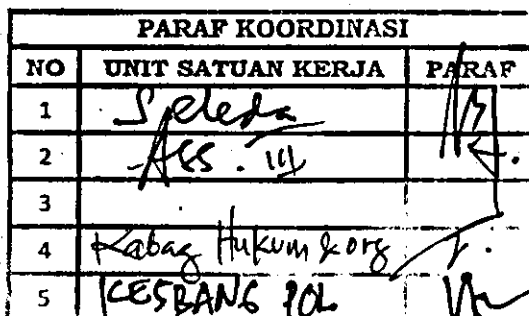 PARAF KOORDINASI
NO UNIT SATUAN KERJA PARAF
1 Sekda
2 Ass. III
3
4 Kabag Hukum & org
5 KESBANG POL